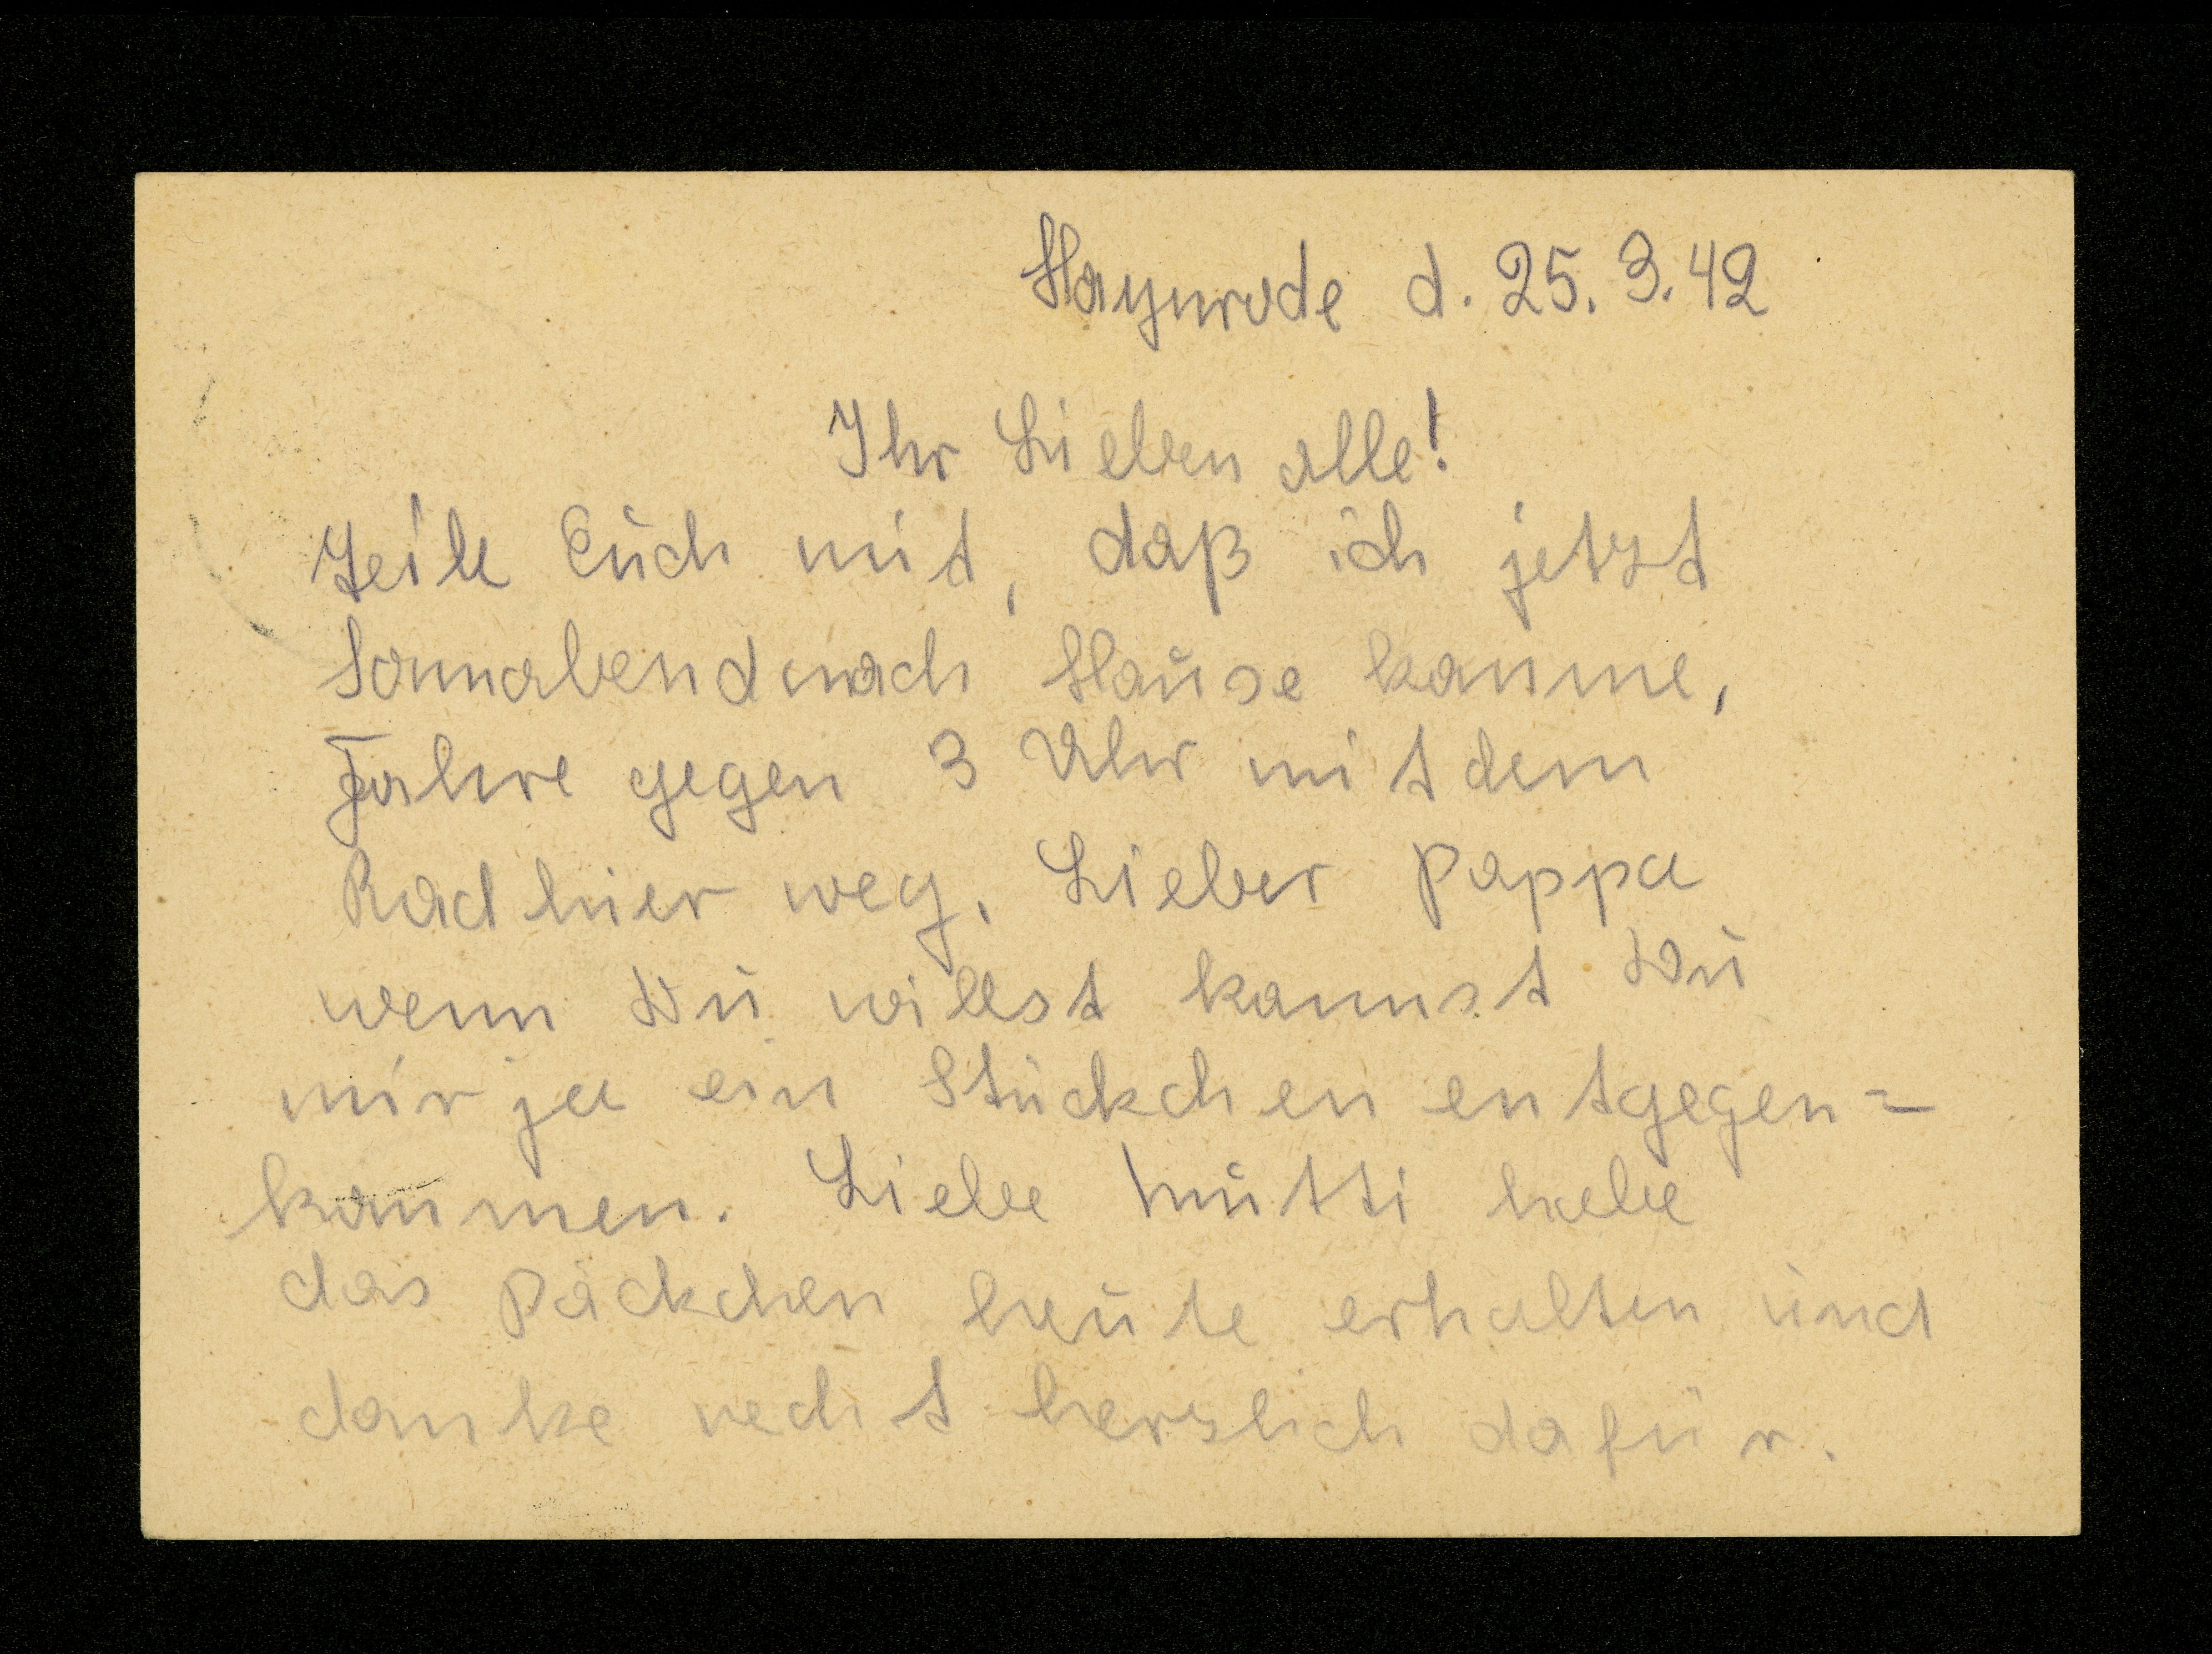 Haynrode d. 25.3.42
Ihr Lieben alle!
Teile Euch mit, daß ich jetzt
Sonnabend nach Hause komme,
Fahre gegen 3 Uhr mit dem
Rad hier weg. Lieber Pappa
wenn Du willst kannst Du
mir ja ein Stückchen entgegen=
kommen. Liebe Mutti habe
das Päckchen heute erhalten und
danke recht herzlich dafür.